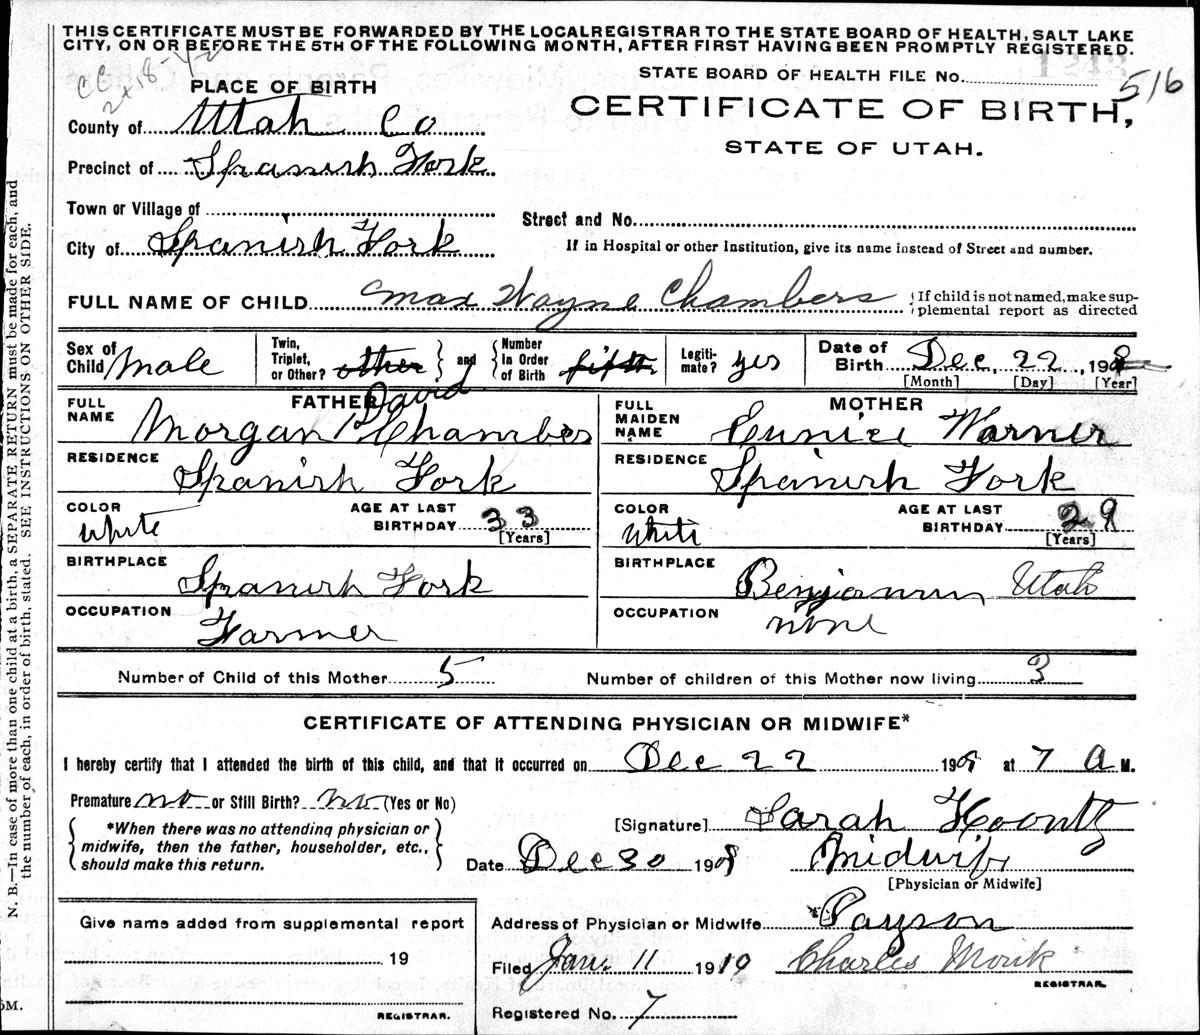 THIS CERTIFICATE MUST BE FORWARDED BY THE LOCAL REGISTRAR TO THE STATE BOARD OF HEALTH, SALT LAKE
CITY, ON OR BEFORE THE 5TH OF THE FOLLOWING MONTH, AFTER FIRST HAVING BEEN PROMPTLY REGISTERED.
STATE BOARD OF HEALTH FILE No. 516
PLACE OF BIRTH
CERTIFICATE OF BIRTH,
County of Utah Co
STATE OF UTAH.
Precinct of Spanish Fork
Town or Village of
Street and No.
City of Spanish Fork
If in Hospital or other Institution, give its name instead of Street and number.
FULL NAME OF CHILD Max Wayne Chambers
If child is not named, make sup-
plemental report as directed
Sex of
Child Male
Twin,
Triplet,
or Other? other
and
Number
In Order
of Birth fifth
Legiti-
mate? yes
Date of
Birth Dec, 22, 190
[Month] [Day] [Year]
FATHER
FULL
NAME Morgan David Chambers
RESIDENCE Spanish Fork
COLOR White
AGE AT LAST
BIRTHDAY 33
[Years]
BIRTHPLACE Spanish Fork
OCCUPATION Farmer
MOTHER
FULL
MAIDEN
NAME Eunice Warner
RESIDENCE Spanish Fork
COLOR White
AGE AT LAST
BIRTHDAY 29
[Years]
BIRTHPLACE Benjamin, Utah
OCCUPATION none
Number of Child of this Mother 5
Number of children of this Mother now living 3
CERTIFICATE OF ATTENDING PHYSICIAN OR MIDWIFE*
I hereby certify that I attended the birth of this child, and that it occurred on Dec 22 1909 at 7 A M.
Premature no or Still Birth? No (Yes or No)
*When there was no attending physician or
midwife, then the father, householder, etc.,
should make this return.
[Signature] Sarah Koontz
Date Dec 30 1909 Midwife
[Physician or Midwife]
Give name added from supplemental report
19
REGISTRAR.
Address of Physician or Midwife Payson
Filed Jan. 11 1910 Charles Monk
REGISTRAR.
Registered No. 7
N. B.—In case of more than one child at a birth, a SEPARATE RETURN must be made for each, and
the number of each, in order of birth, stated. SEE INSTRUCTIONS ON OTHER SIDE.